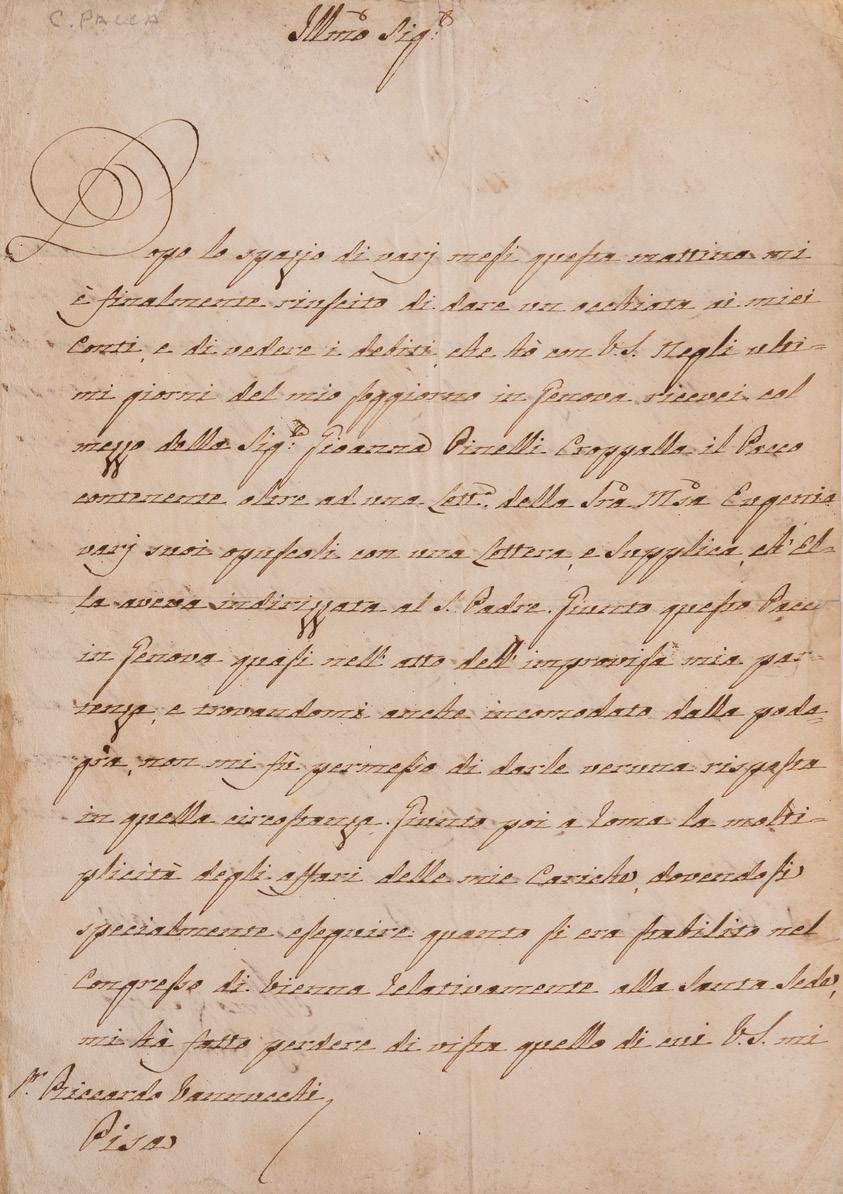 C. PACCA
Illmo Sigre
Dopo lo spazio di varj mesi questa mattina mi
è finalmente riuscito di dare un occhiata ai miei
Conti, e di vedere i debiti, che hò con V.S. Negli ulti-
mi giorni del mio soggiorno in Genova ricevei col
mezzo della Sigra Gioanna Pinelli Croppalla il Pacco
contenente oltre ad una Letta della Sra Msa Eugenia
varj suoi opuscoli con una Lettera, e Supplica, ch' El-
la aveva indirizzata al S. Padre. Giunto questo Pacco
in Genova quasi nell' atto dell' improvisa mia par-
tenza, e trovandomi anche incomodato dalla poda-
gra, non mi fù permesso di darle veruna risposta
in quella circostanza. Giunto poi a Roma la molti-
plicità degli affari delle mie Cariche, dovendosi
specialmente eseguire quanto si era stabilito nel
Congresso di Vienna relativamente alla Santa Sede,
mi hà fatto perdere di vista quello di cui V.S. mi
Sr Riccardo Vannucchi
Pisa